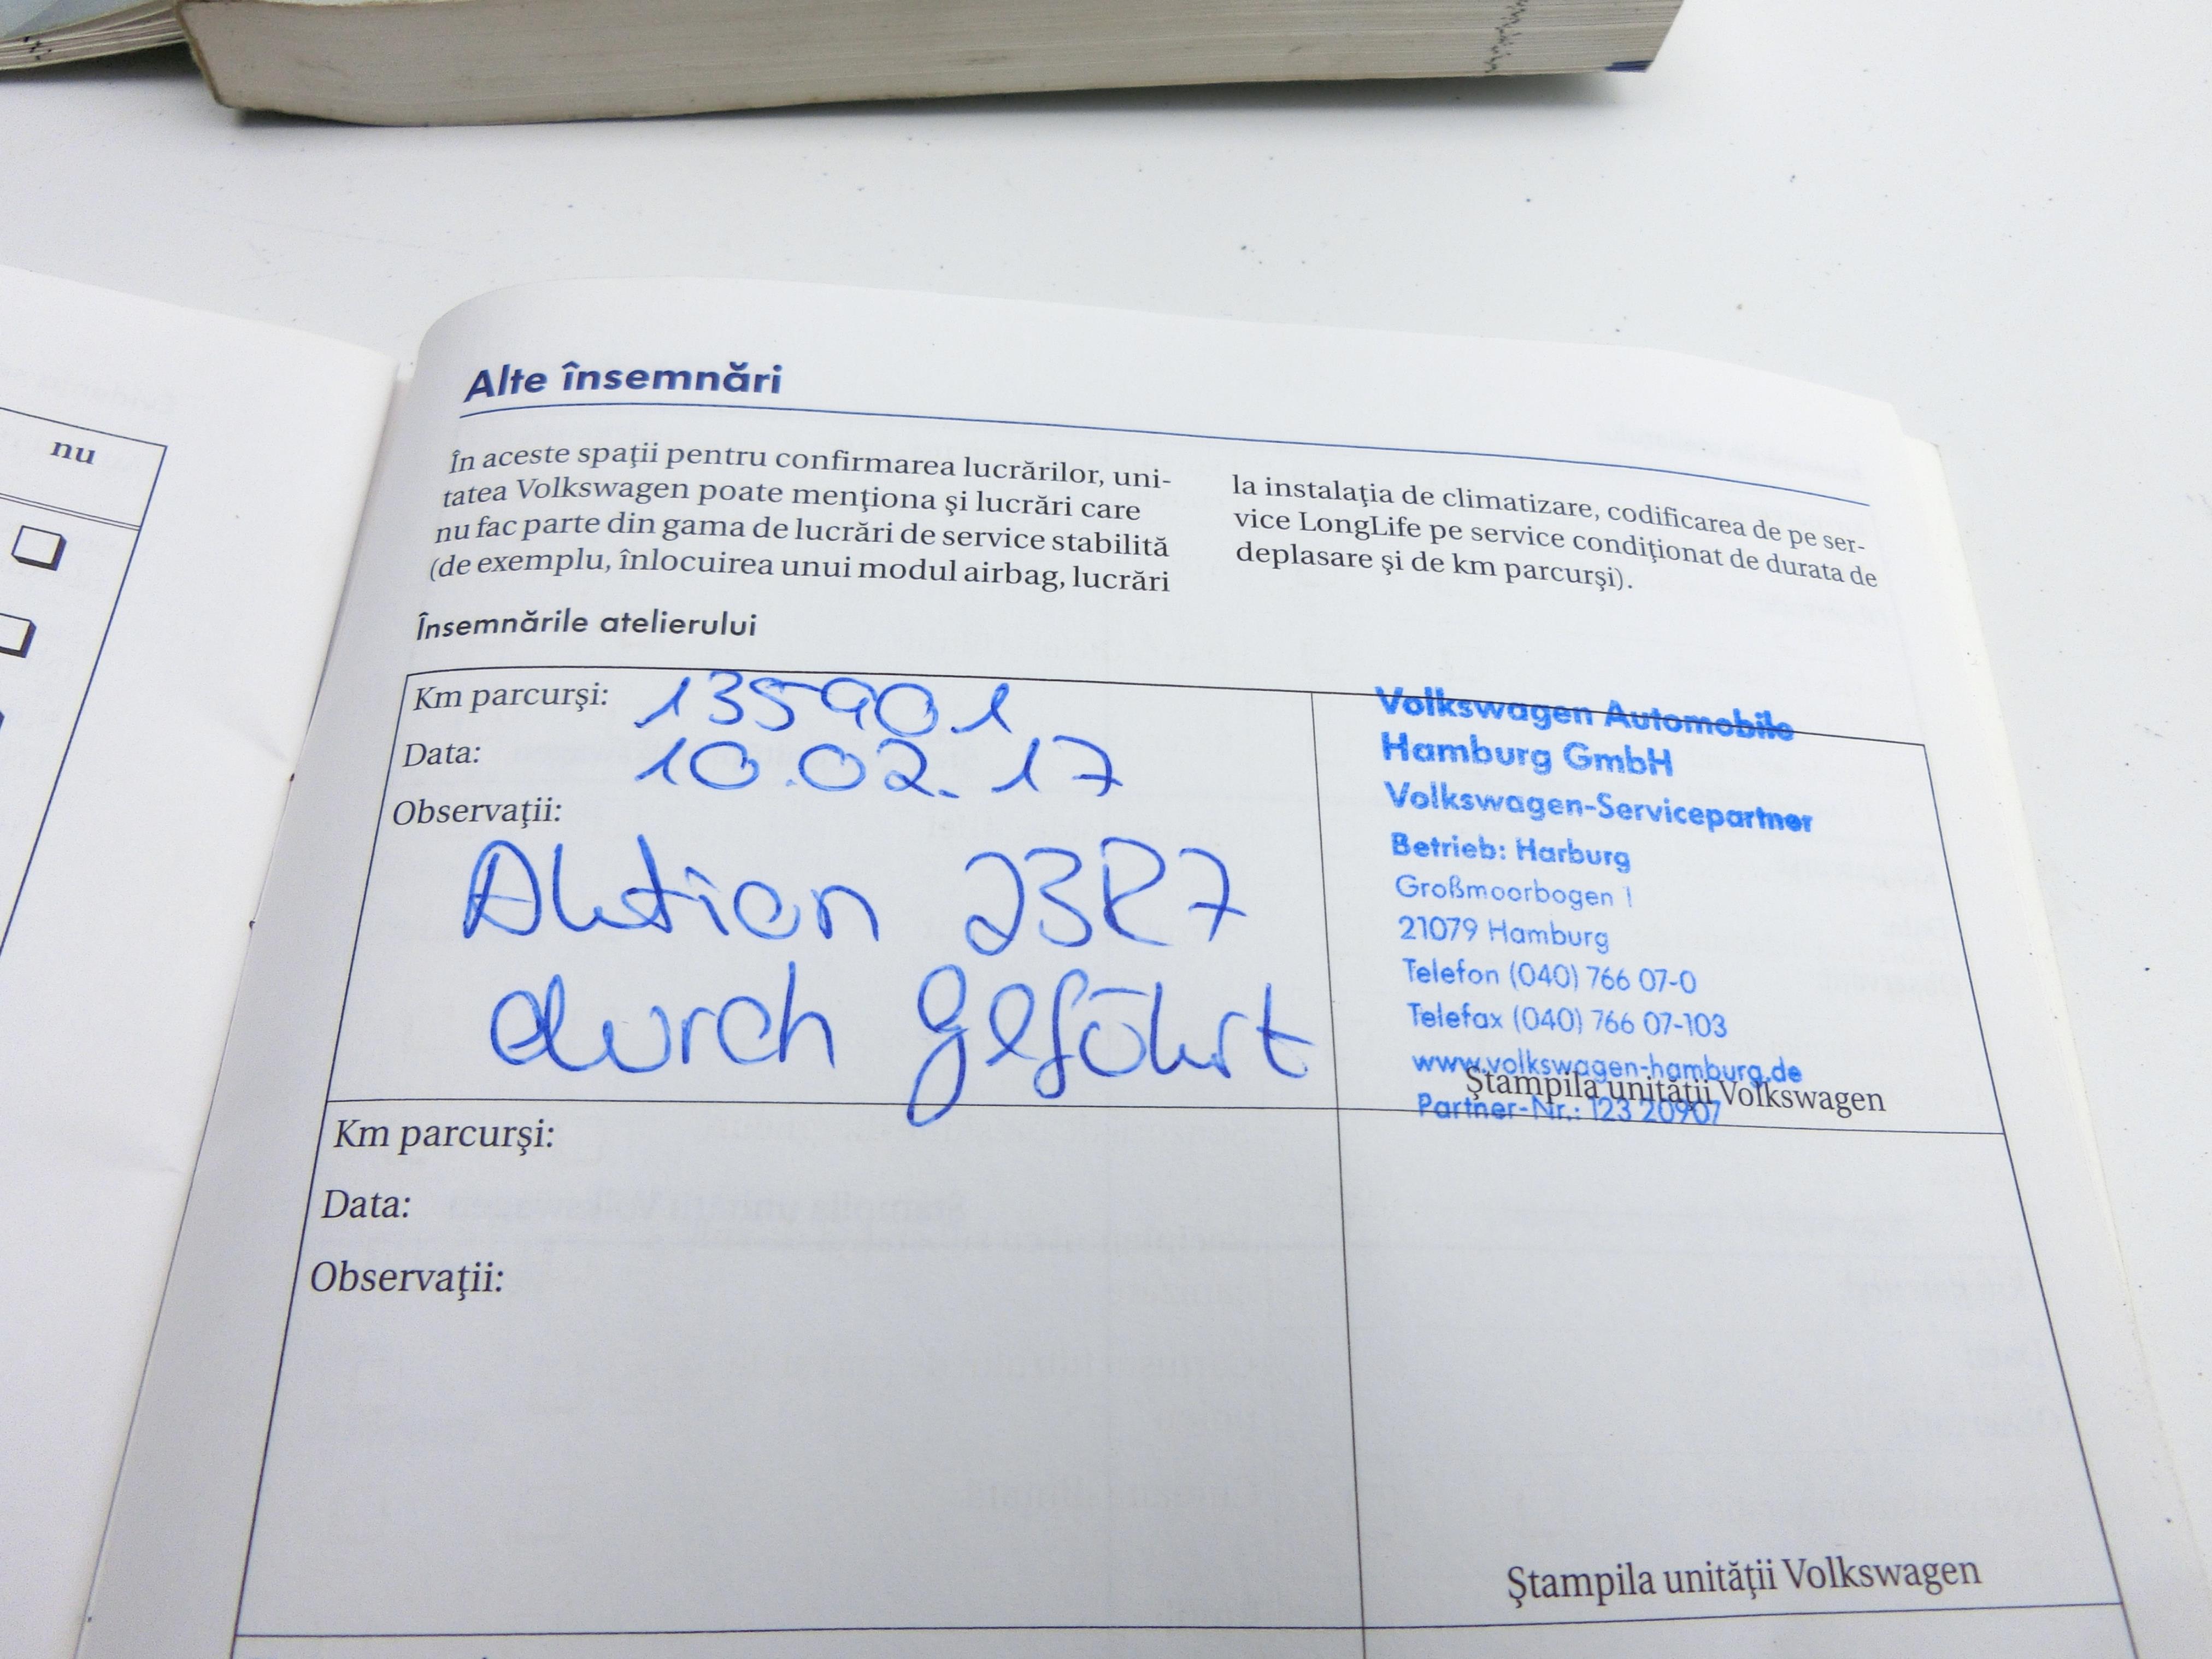 nu
Alte însemnări
În aceste spaţii pentru confirmarea lucrărilor, uni-
tatea Volkswagen poate menţiona şi lucrări care
nu fac parte din gama de lucrări de service stabilită
(de exemplu, înlocuirea unui modul airbag, lucrări
la instalaţia de climatizare, codificarea de pe ser-
vice LongLife pe service condiţionat de durata de
deplasare şi de km parcurşi).
Însemnările atelierului
Km parcurşi: 135901
Data: 10.02.17
Observaţii:
Aktion 23R7
durch geführt
Volkswagen Automobile
Hamburg GmbH
Volkswagen-Servicepartner
Betrieb: Harburg
Großmoorbogen 1
21079 Hamburg
Telefon (040) 766 07-0
Telefax (040) 766 07-103
www.volkswagen-hamburg.de
Ştampila unităţii Volkswagen
Partner-Nr.: 123 20907
Km parcurşi:
Data:
Observaţii:
Ştampila unităţii Volkswagen